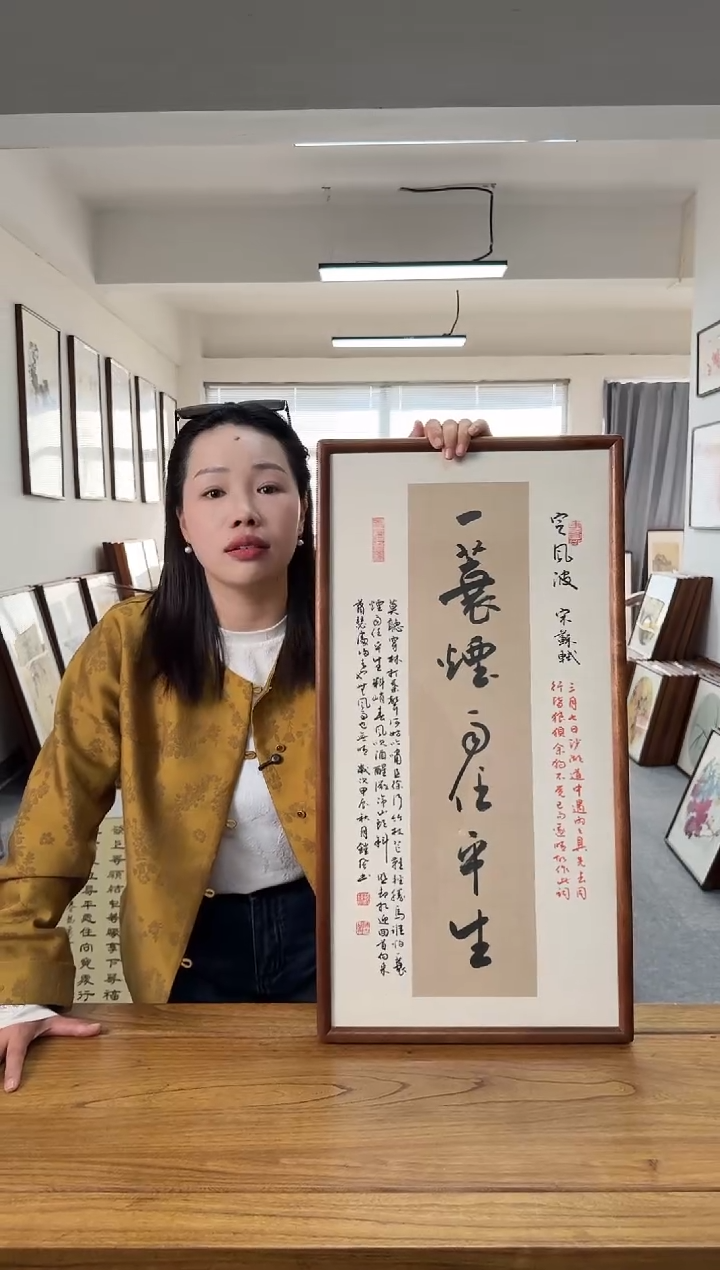 定風波 宋蘇軾
三月七日沙湖道中遇雨〻具先去同
行皆狼狽余獨不覺已而遂晴故作此詞
一蓑煙雨任平生
莫聽穿林打葉聲何妨吟嘯且徐行竹杖芒鞋輕勝馬誰怕一蓑
煙雨任平生料峭春風吹酒醒微冷山頭斜照卻相迎回首向來
蕭瑟處歸去也無風雨也無晴 歲次甲辰秋月
發上等願結中等緣享下等福
立尋平處住向寬處行